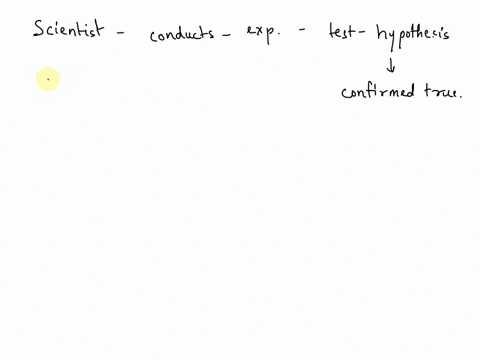 Scientist - conducts - exp. - test - hypothesis
↓
confirmed true.